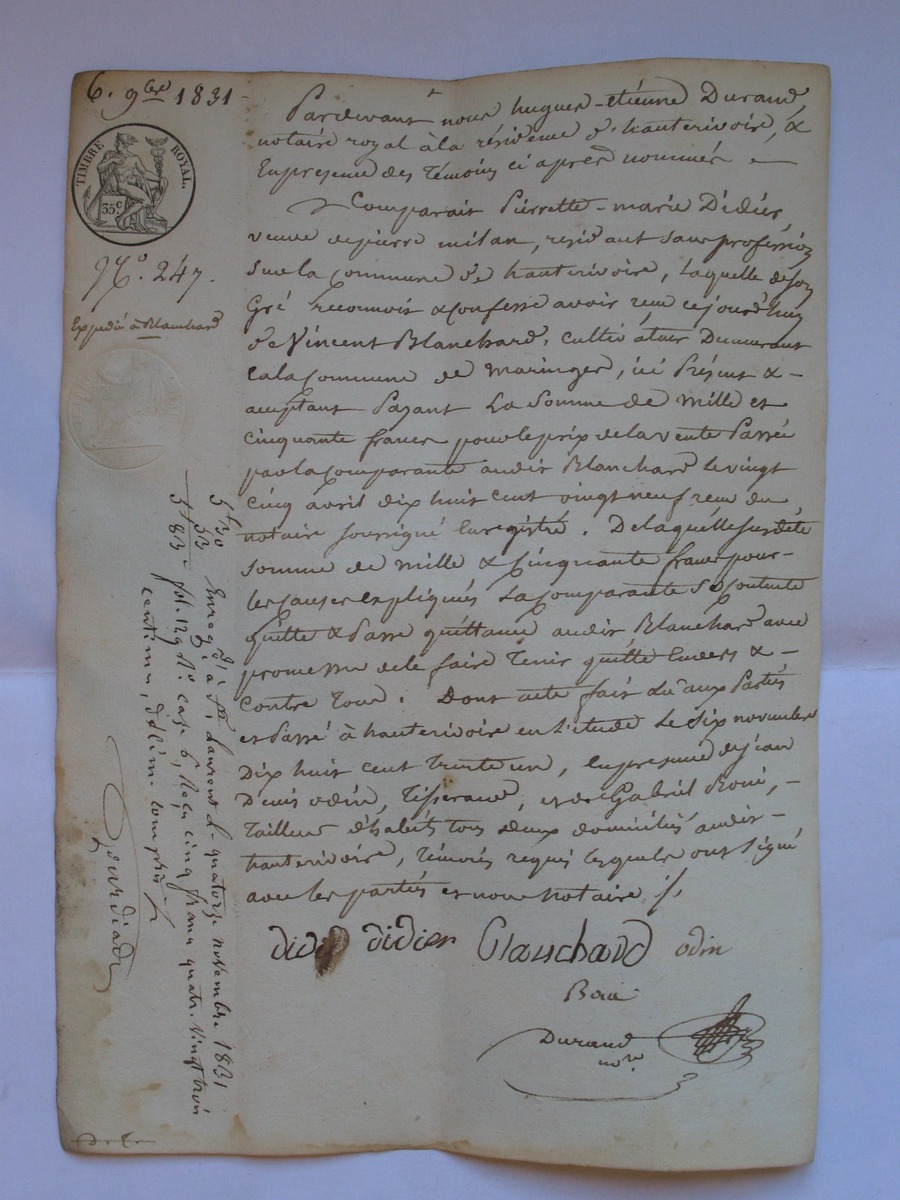 6. 9bre 1831
TIMBRE ROYAL.
35 c
N.o 247.
Expédié à Blanchard
Pardevant nous hugues-etienne Durand,
notaire royal à la résidence d'hauterivoire, &
En presence des Témoins ci après nommés
Comparait Pierrette-marie Didier,
veuve de pierre milan, résidant sans profession
sur la Commune de hauterivoire, Laquelle de son
Gré reconnois & Confesse avoir reçu cejourd'huy
de Vincent Blanchard, cultivateur Demeurant
en la Commune de maringes, ici Présent & -
acceptant Payant La Somme de mille et
cinquante francs pour le prix de la vente Passée
par la Comparante audit Blanchard le vingt
cinq avril dix huit cent vingt neuf reçu du
notaire soussigné Enregistré. De laquelle susdite
somme de mille & Cinquante francs pour -
les causes expliqués La Comparante se Contente
quitte & Passe quittance audit Blanchard avec
promesse de le faire Tenir quitte Envers & -
Contre Tous. Dont acte fait Lu aux Parties
et Passé à hauterivoire en l'étude Le Six novembre
Dix huit cent Trente un, En presence de jean
Denis odin, Tisserand, et de Gabriel Boué, -
Tailleur d'habits tous deux domiciliés audit -
hauterivoire, Témoins requis lesquels ont Signé
avec les parties et nous Notaire ./.
didier didier Blanchard odin
Boué
Durand
nore
5f 30
53
5f 83
Enregé à St Laurent le quatorze novembre 1831
fol. 129 Ro. case 6, Reçu cinq francs quatre vingt trois
centimes, décime compris